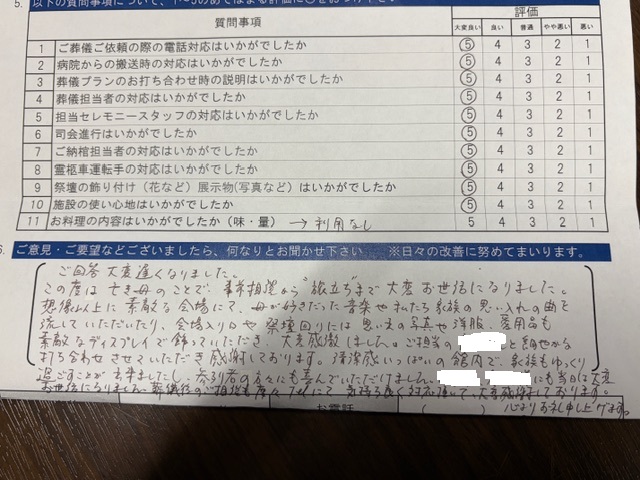 5. 以下の質問事項について、1~5のあてはまる評価に○をお付け下さい
質問事項 評価
大変良い 良い 普通 やや悪い 悪い
1 ご葬儀ご依頼の際の電話対応はいかがでしたか 5 4 3 2 1
2 病院からの搬送時の対応はいかがでしたか 5 4 3 2 1
3 葬儀プランのお打ち合わせ時の説明はいかがでしたか 5 4 3 2 1
4 葬儀担当者の対応はいかがでしたか 5 4 3 2 1
5 担当セレモニースタッフの対応はいかがでしたか 5 4 3 2 1
6 司会進行はいかがでしたか 5 4 3 2 1
7 ご納棺担当者の対応はいかがでしたか 5 4 3 2 1
8 霊柩車運転手の対応はいかがでしたか 5 4 3 2 1
9 祭壇の飾り付け（花など）展示物(写真など）はいかがでしたか 5 4 3 2 1
10 施設の使い心地はいかがでしたか 5 4 3 2 1
11 お料理の内容はいかがでしたか（味・量） →利用なし 5 4 3 2 1
6. ご意見・ご要望などございましたら、何なりとお聞かせ下さい ※日々の改善に努めてまいります。
ご回答大変遅くなりました。
この度は亡き母のことで、事前相談から"旅立ち"まで大変お世話になりました。
想像以上に素敵な会場にて、母が好きだった音楽や私たち家族の思い入れの曲を
流していただいたり、会場入り口や祭壇回りには思い出の写真や洋服、愛用品も
素敵なディスプレイで飾っていただき、大変感激しました。ご担当の と細やかな
打ち合わせさせていただき感謝しております。清潔感いっぱいの館内で、家族もゆっくり
過ごすことが出来ましたし、参列者の方々にも喜んでいただけました。 にも当日は大変
お世話になりました。 大変感謝しております。
お電話 ( ) 心よりお礼申し上げます。